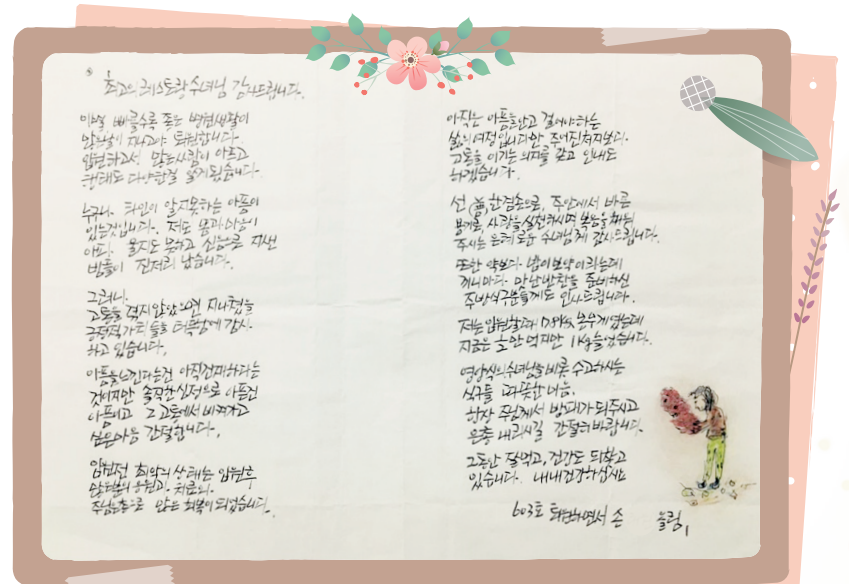 최고의 레스토랑 수녀님 감사드립니다.
이별 빠를수록 좋은 병원생활이
많은날이 지나고야 퇴원합니다.
입원하고서 많은사람이 아프고
형태도 다양한걸 알게됬습니다.
누구나. 타인이 알지못하는 아픔이
있는것입니다. 저도 몸과마음이
아파. 울지도 못하고 신음으로 지샌
밤들이 진저리 났습니다.
그러나.
고통을 겪지 않았으면 지나쳤을
긍정적가치들로 더욱삶에 감사.
하고 있습니다.
아픔을느낀다는건 아직건재하다는
것이지만 솔직한심정으로 아픔건
아픔이고 그 고통에서 비껴가고
싶은마음 간절합니다.
입원전 최악의 상태는 입원후
많은분의 응원과. 치료의.
주님은총으로 많은 회복이 되었습니다.
아직은 아픔을안고 걸어야하는
삶의여정입니다만 주어진처지보다.
고통을 이기는 의지를 갖고 인내도
하겠습니다.
선(善)한걸음으로, 주안에서 바른
사랑을 실천하시며 복음을
주시는 은혜로운 수녀님께 감사드립니다.
또한 약보다. 밥이보약이라는데
끼니마다. 맛난반찬을 준비하신
주방식구분들께도 인사드립니다.
저는 입원할때 몸무게였는데
지금은 만 먹지만 1Kg늘었습니다.
영양식의수녀님을비롯 수고하시는
식구들 따뜻한마음.
항상 주님께서 방패가 되주시고
은총 내리시길 간절히바랍니다.
그동안 잘먹고, 건강도 되찾고
있습니다. 내내건강하십시요
603호 퇴원하면서 손
올림